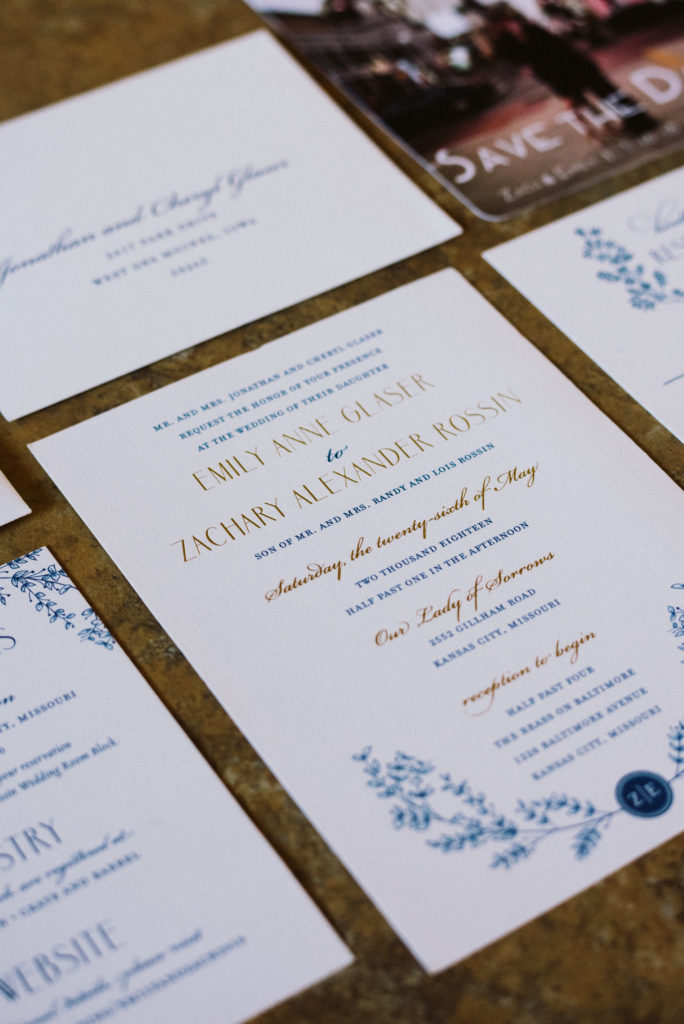 SAVE THE D
Jonathan and Cheryl Glaser
WEST DES MOINES, IOWA
MR. AND MRS. JONATHAN AND CHERYL GLASER
REQUEST THE HONOR OF YOUR PRESENCE
AT THE WEDDING OF THEIR DAUGHTER
EMILY ANNE GLASER
to
ZACHARY ALEXANDER ROSSIN
SON OF MR. AND MRS. RANDY AND LOIS ROSSIN
Saturday, the twenty-sixth of May
TWO THOUSAND EIGHTEEN
HALF PAST ONE IN THE AFTERNOON
Our Lady of Sorrows
2552 GILLHAM ROAD
KANSAS CITY, MISSOURI
reception to begin
HALF PAST FOUR
THE BRASS ON BALTIMORE
1226 BALTIMORE AVENUE
KANSAS CITY, MISSOURI
Z|E
CITY, MISSOURI
your reservation
Wedding Room Block
STRY
are registered at:
CRATE AND BARREL
WEBSITE